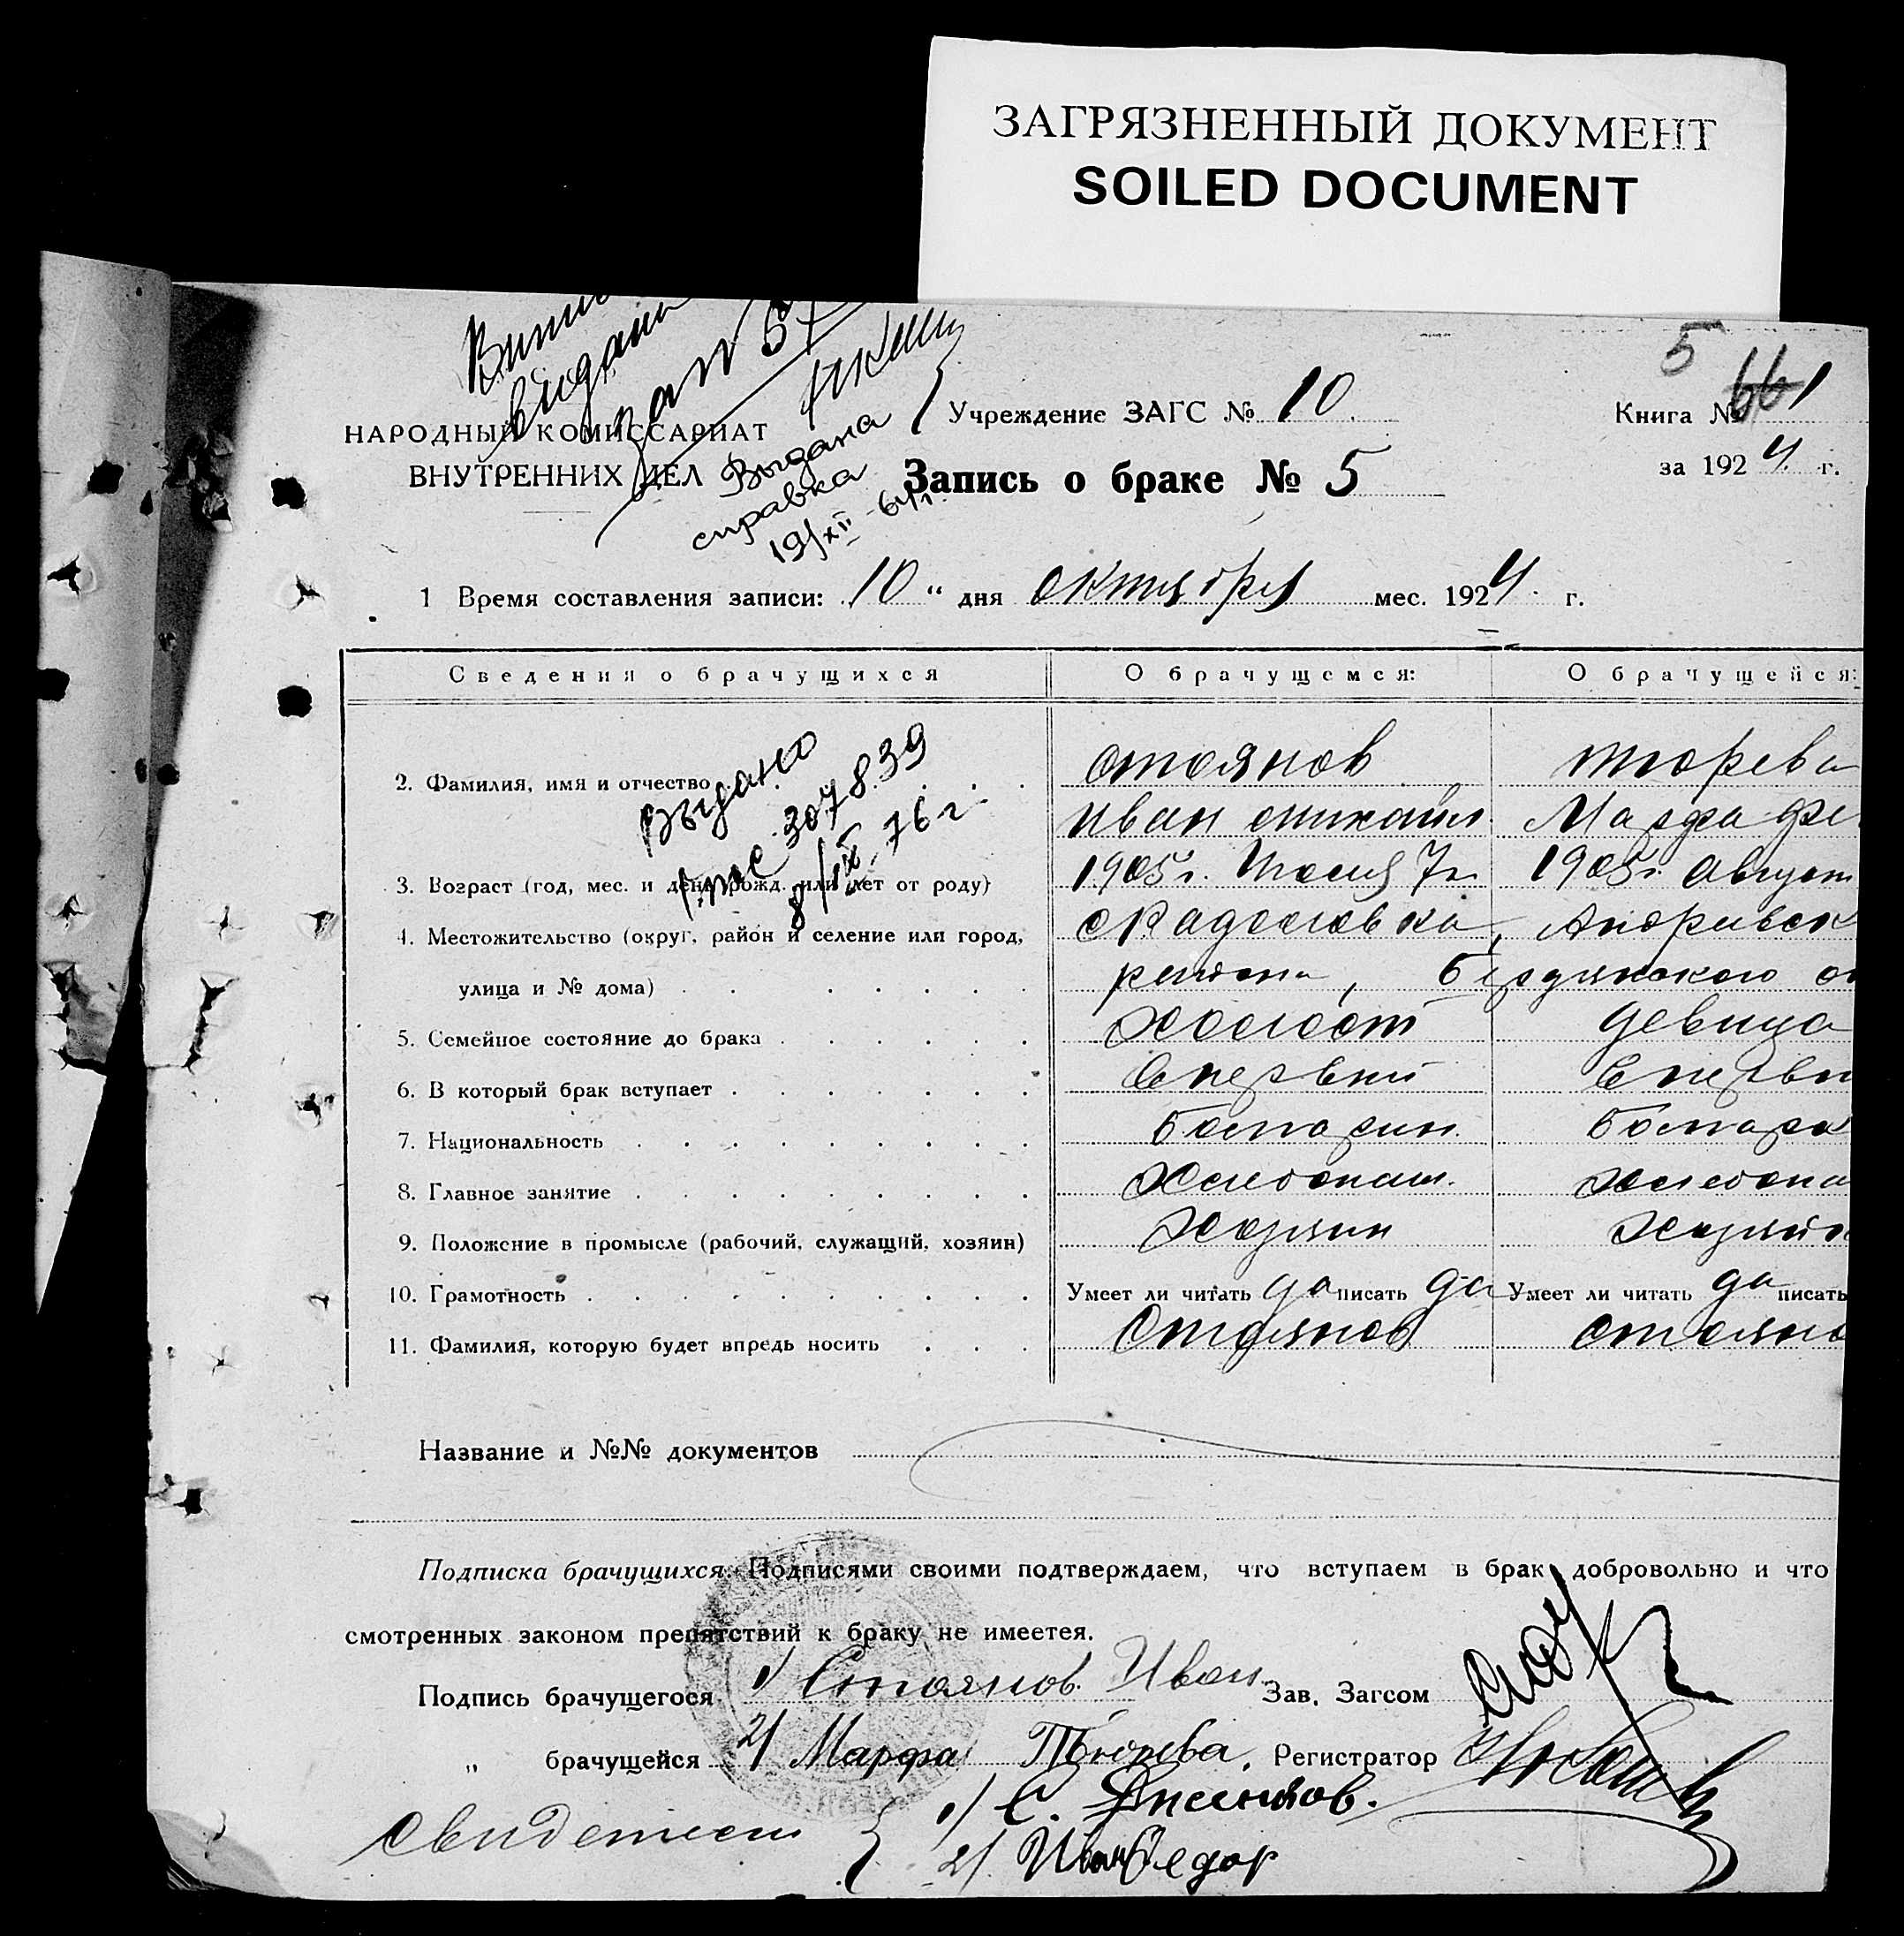 ЗАГРЯЗНЕННЫЙ ДОКУМЕНТ
SOILED DOCUMENT
5
661
НАРОДНЫЙ КОМИССАРИАТ
ВНУТРЕННИХ ДЕЛ
Выдана
справка
19/XII 64 г.
Учреждение ЗАГС № 10.
Книга №
за 1924 г.
Запись о браке № 5
1 Время составления записи: 10 " дня октября мес. 1924 г.
Сведения о брачущихся О брачущемся: О брачущейся:
2. Фамилия, имя и отчество Стоянов Тюрева
Иван Михайл. Марфа Фе
Выдано
307839
8/IX 76 г.
3. Возраст (год, мес. и день рожд. или лет от роду) 1905г. 1905г. Август
4. Местожительство (округ, район и селение или город, с Радоловка, Андривск
улица и № дома) района, Бердянского о
5. Семейное состояние до брака холост девица
6. В который брак вступает впервый впервы
7. Национальность болгарин болгарк
8. Главное занятие хлебопаш. хлебопа
9. Положение в промысле (рабочий, служащий, хозяин) хозяин хозяйк
10. Грамотность Умеет ли читать да писать да Умеет ли читать да писать
11. Фамилия, которую будет впредь носить Стоянов Стояно
Название и №№ документов
Подписка брачущихся: Подписями своими подтверждаем, что вступаем в брак добровольно и что
смотренных законом препятствий к браку не имеетея.
Подпись брачущегося 1/ Стоянов Иван Зав. Загсом
" брачущейся 2/ Марфа Тюрева. Регистратор
свидетели
1/ С.
2/ Иван Федор